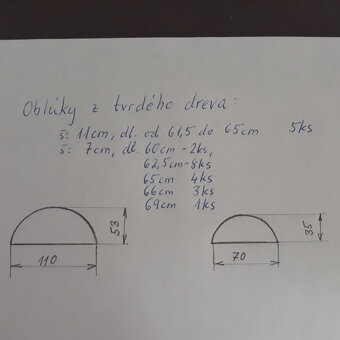 Oblúky z tvrdého dreva:
š: 11cm, dl. od 61,5 do 65cm 5ks
š: 7cm, dl. 60cm - 2ks,
62,5cm - 8ks
65cm 4ks
66cm 3ks
69cm 1ks
53
110
35
70